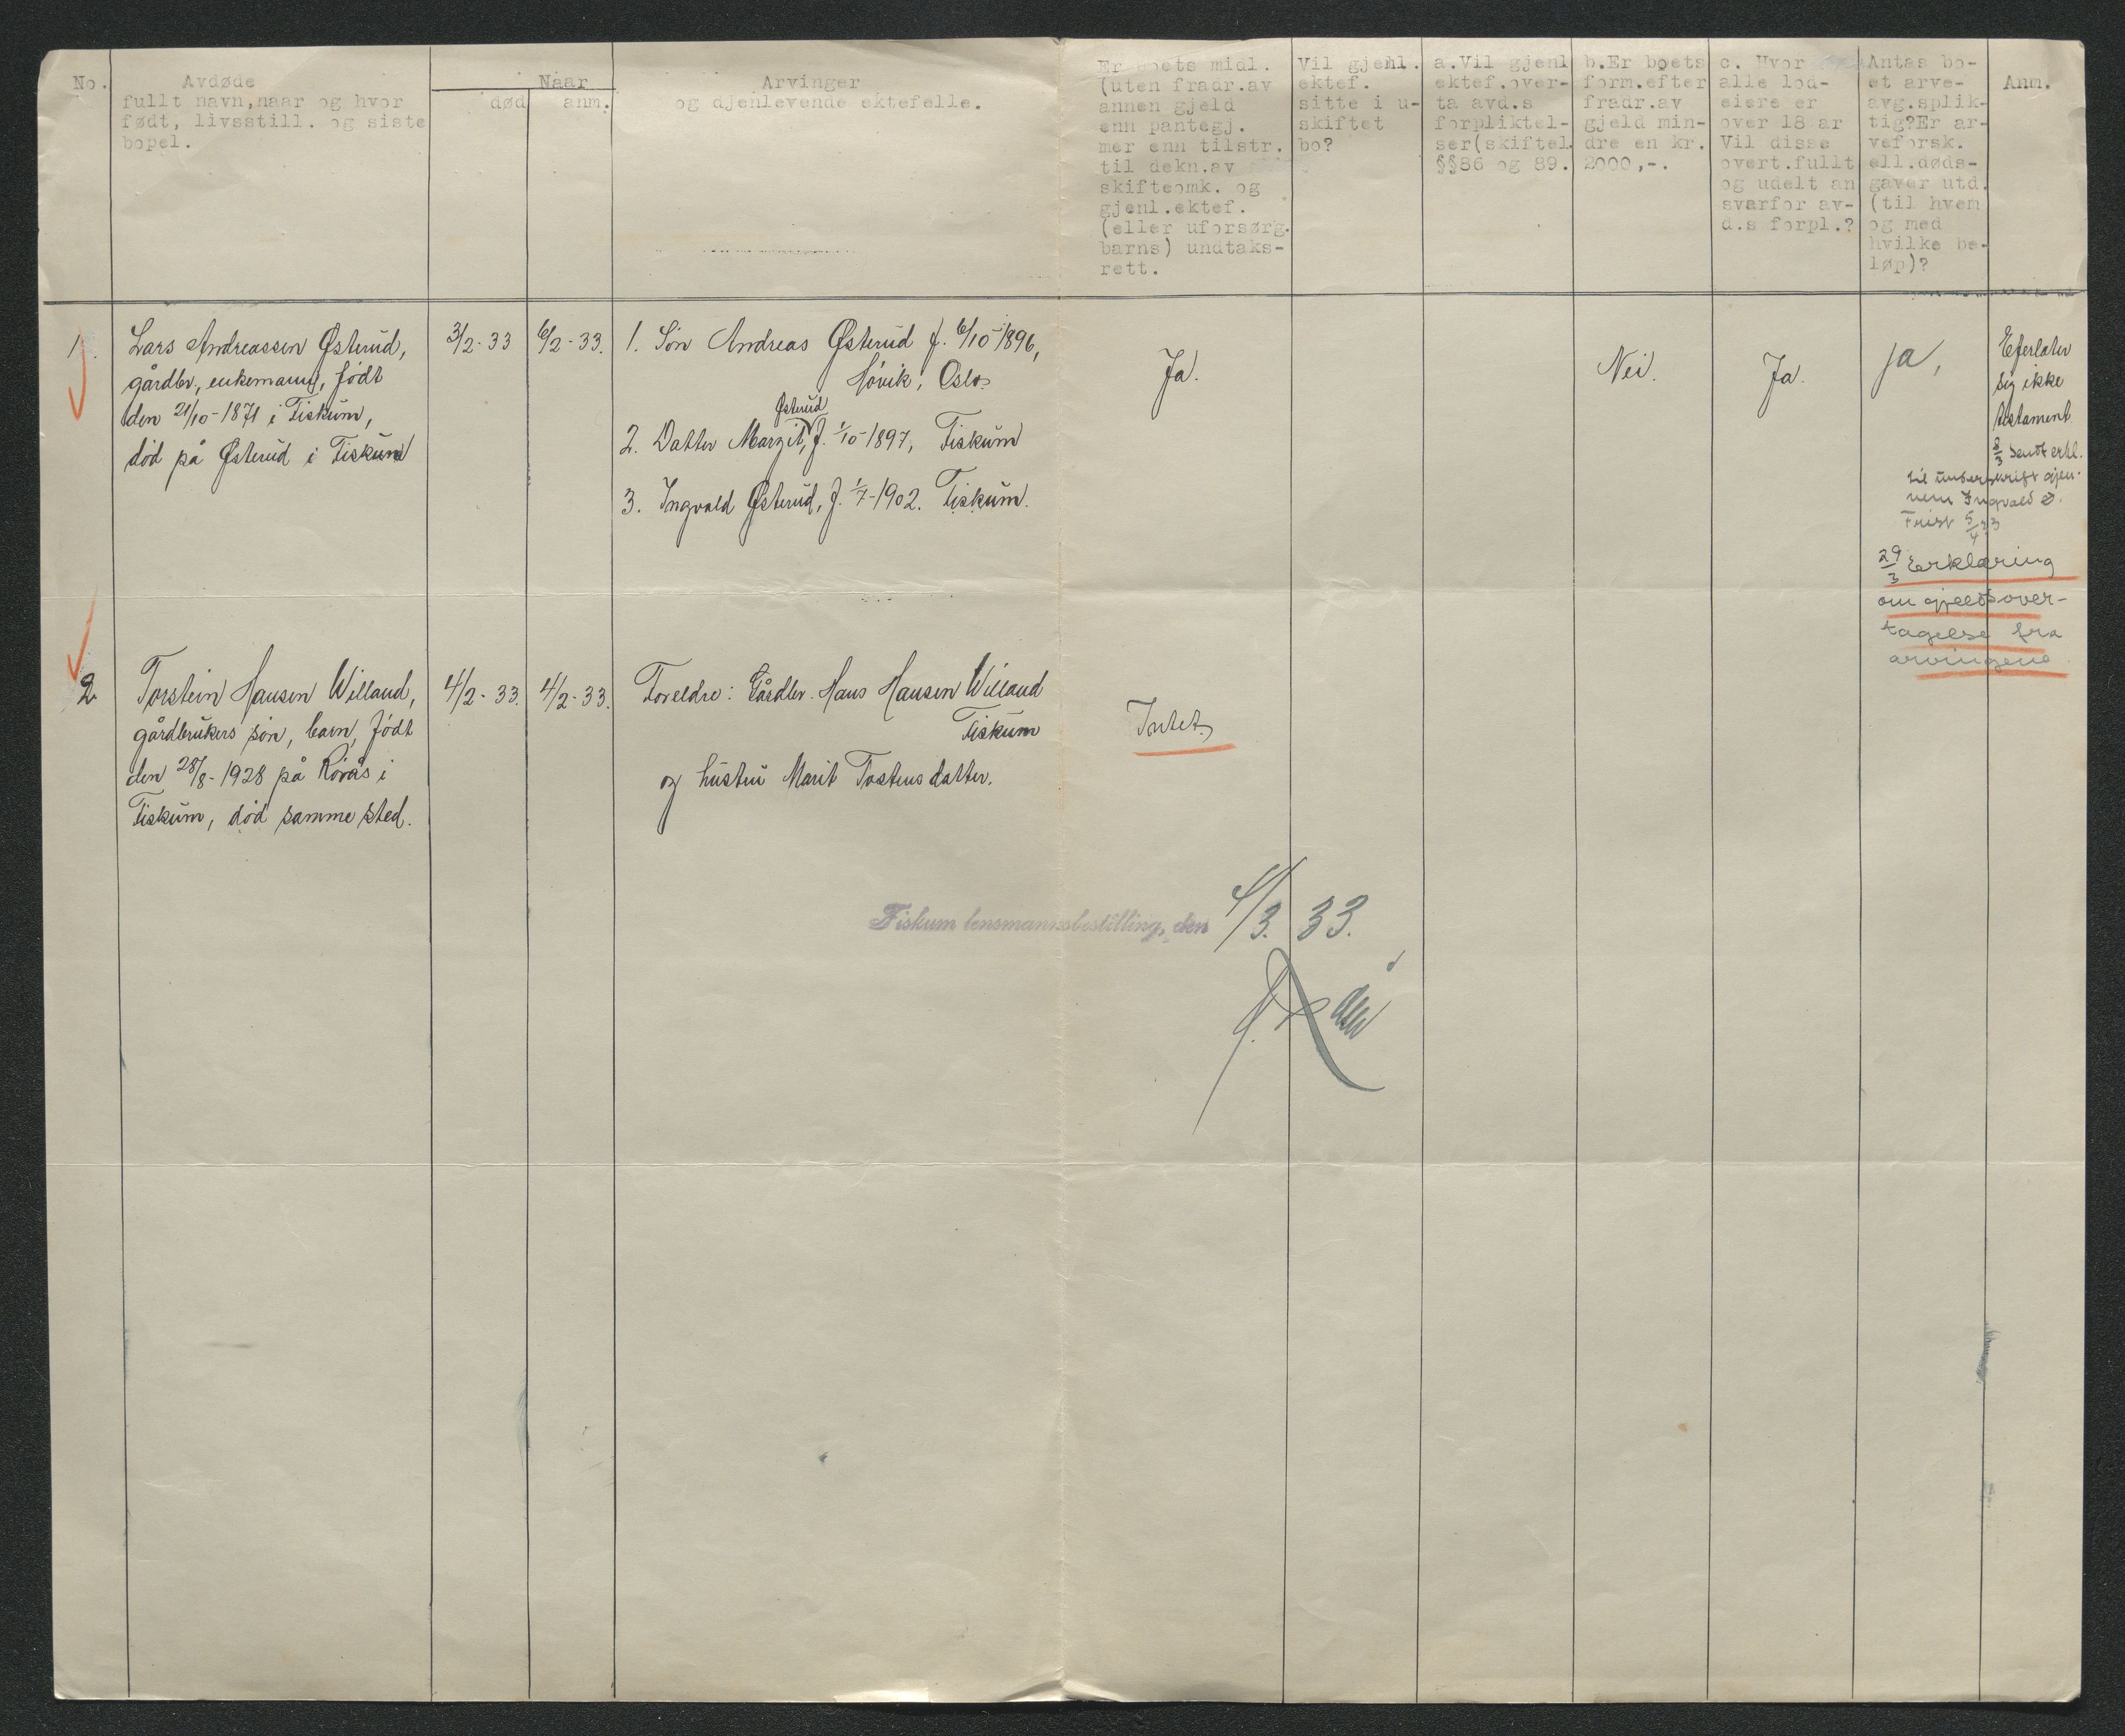 No.
Avdøde
fullt navn,naar og hvor
født, livsstill. og siste
bopel.
Naar
død anm.
Arvinger
og djenlevende ektefelle.
Er boets midl.
(uten fradr.av
annen gjeld
enn pantegj.
mer enn tilstr.
til dekn.av
skifteomk. og
gjenl.ektef.
(eller uforsørg.
barns) undtaks-
rett.
Vil gjenl.
ektef.
sitte i u-
skiftet
bo?
a.Vil gjenl
ektef.over-
ta avd.s
forpliktel-
ser(skiftel.
§§86 og 89.
b.Er boets
form.efter
fradr.av
gjeld min-
dre en kr.
2000,-.
c. Hvor
alle lod-
eiere er
over 18 ar
Vil disse
overt.fullt
og udelt an
svarfor av-
d.s forpl.?
Antas bo-
et arve-
avg.splik-
tig?Er ar-
veforsk.
ell.døds-
gaver utd.
(til hvem
og med
hvilke be-
løp)?
Anm.
1.
Lars Andreassen Østerud,
gårdbr., enkemann, født
den 21/10-1871 i Fiskum,
død på Østerud i Fiskum
3/2-33
6/2-33.
1. Søn Andreas Østerud f. 6/10-1896,
Høvik, Oslo.
Østerud
2. Datter Margit, f. 1/10-1897, Fiskum
3. Ingvald Østerud, f. 1/7-1902. Fiskum.
Ja.
Nei.
Ja.
ja,
Efterlater
sig ikke
testament.
8/3 sendt erkl.
til underskrift gjen-
nem Ingvald Ø.
Frist 5/4 33
29/3 Erklæring
om gjeldsover-
tagelse fra
arvingene
2
Torstein Hansen Willand,
gårdbrukers søn, barn, født
den 28/8-1928 på Rørås i
Fiskum, død samme sted.
4/2-33.
4/2-33.
Foreldre: Gårdbr. Hans Hansen Willand
Fiskum
og hustru Marit Tostensdatter.
Intet.
Fiskum lensmannsbestilling, den 4/3. 33.